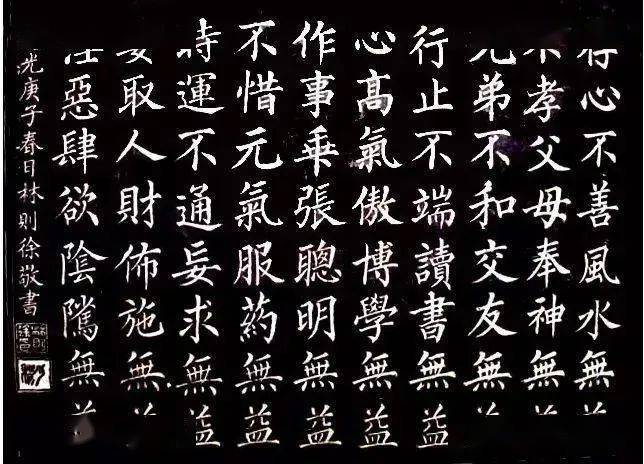 存心不善風水無益
不孝父母奉神無益
兄弟不和交友無益
行止不端讀書無益
心髙氣傲博學無益
作事乖張聰明無益
不惜元氣服葯無益
時運不通妄求無益
妄取人財佈施無益
淫惡肆欲陰騭無益
光庚子春日林則徐敬書